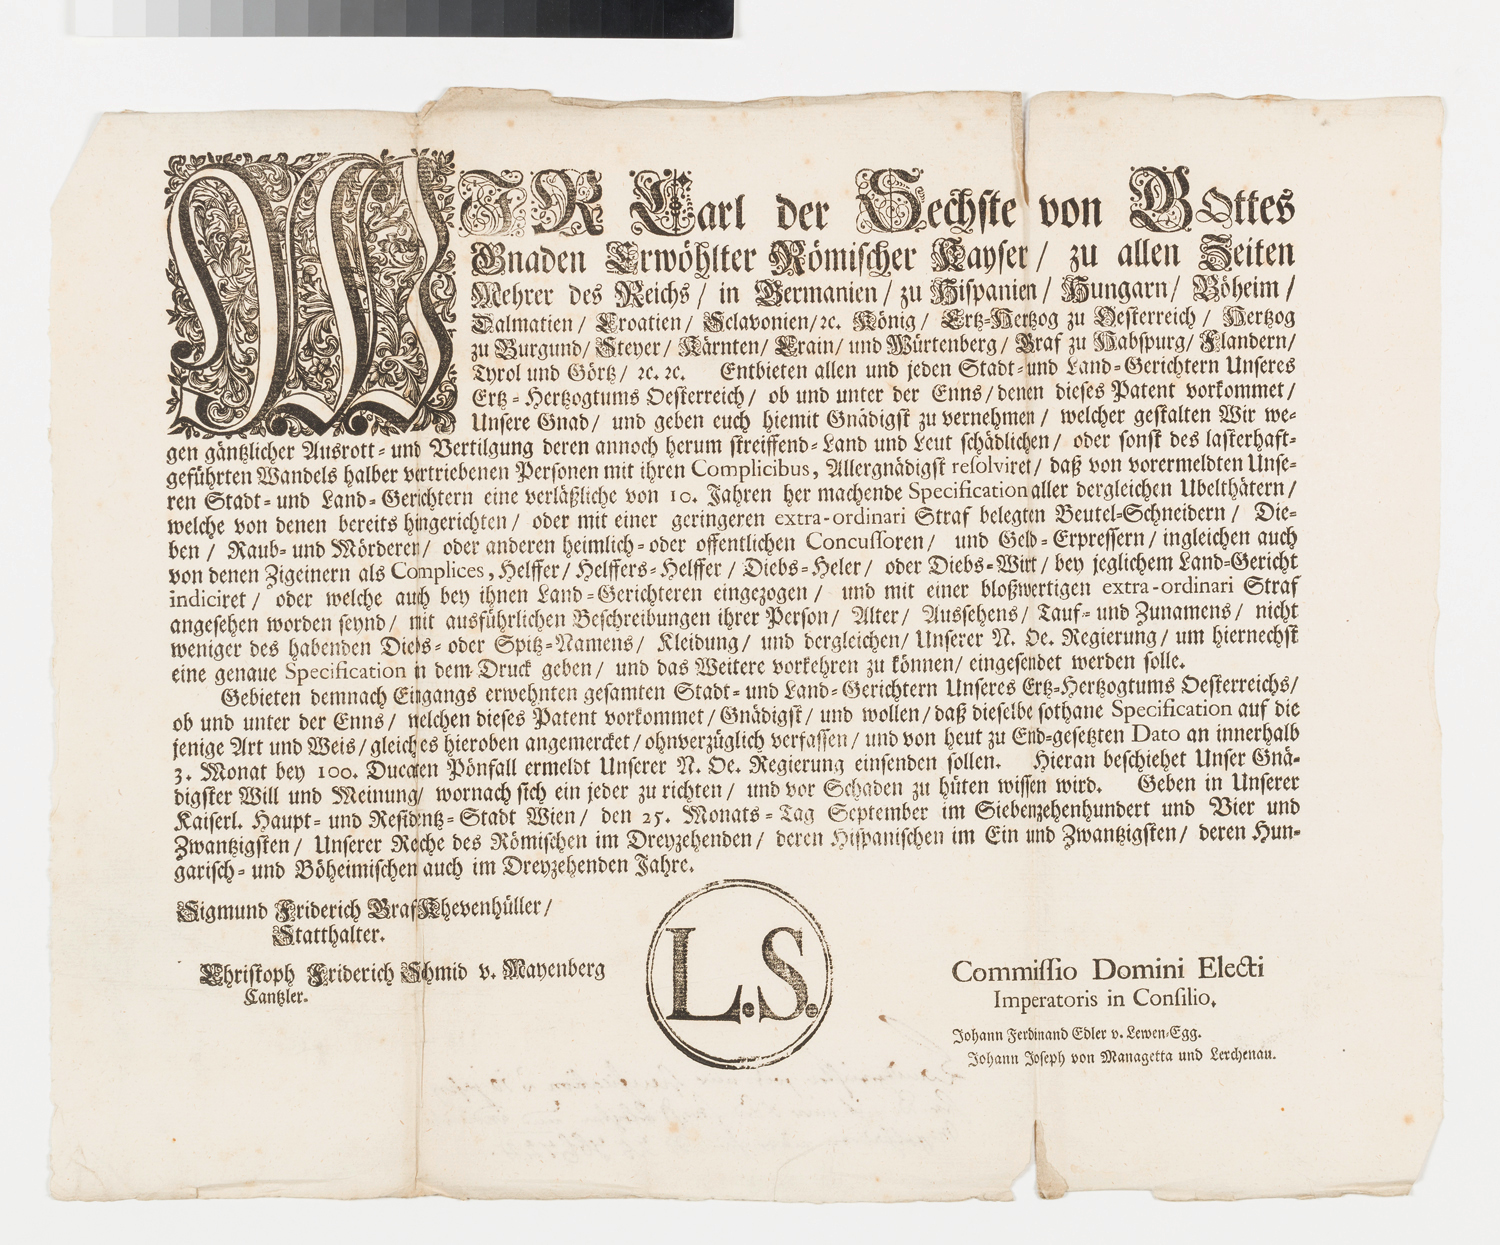 WIR Carl der Sechste von GOttes
Gnaden Erwöhlter Römischer Kayser / zu allen Zeiten
Mehrer des Reichs / in Germanien / zu Hispanien / Hungarn / Böheim /
Dalmatien / Croatien / Sclavonien / ꝛc. König / Ertz-Hertzog zu Oesterreich / Hertzog
zu Burgund / Steyer / Kärnten / Crain / und Würtenberg / Graf zu Habspurg / Flandern /
Tyrol und Görtz / ꝛc. ꝛc. Entbieten allen und jeden Stadt- und Land-Gerichtern Unseres
Ertz-Hertzogtums Oesterreich / ob und unter der Enns / denen dieses Patent vorkommet /
Unsere Gnad / und geben euch hiemit Gnädigst zu vernehmen / welcher gestalten Wir we-
gen gäntzlicher Ausrott- und Vertilgung deren annoch herum streiffend-Land und Leut schädlichen / oder sonst des lasterhaft-
geführten Wandels halber vertriebenen Personen mit ihren Complicibus, Allergnädigst resolviret / daß von vorermeldten Unse-
ren Stadt- und Land-Gerichtern eine verläßliche von 10. Jahren her machende Specification aller dergleichen Ubelthätern /
welche von denen bereits hingerichten / oder mit einer geringeren extra-ordinari Straf belegten Beutel-Schneidern / Die-
ben / Raub- und Mörderen / oder anderen heimlich- oder offentlichen Concussoren / und Geld-Erpressern / ingleichen auch
von denen Zigeinern als Complices, Helffer / Helffers-Helffer / Diebs-Heler / oder Diebs-Wirt / bey jeglichem Land-Gericht
indiciret / oder welche auch bey ihnen Land-Gerichteren eingezogen / und mit einer bloßwertigen extra-ordinari Straf
angesehen worden seynd / mit ausführlichen Beschreibungen ihrer Person / Alter / Aussehens / Tauf- und Zunamens / nicht
weniger des habenden Diebs- oder Spitz-Namens / Kleidung / und dergleichen / Unserer N. Oe. Regierung / um hiernechst
eine genaue Specification in dem Druck geben / und das Weitere vorkehren zu können / eingesendet werden solle.
Gebieten demnach Eingangs erwehnten gesamten Stadt- und Land-Gerichtern Unseres Ertz-Hertzogtums Oesterreichs /
ob und unter der Enns / welchen dieses Patent vorkommet / Gnädigst / und wollen / daß dieselbe sothane Specification auf die
jenige Art und Weis / gleiches hieroben angemercket / ohnverzüglich verfassen / und von heut zu End-gesetzten Dato an innerhalb
3. Monat bey 100. Ducaten Pönfall ermeldt Unserer N. Oe. Regierung einsenden sollen. Hieran beschiehet Unser Gnä-
digster Will und Meinung / wornach sich ein jeder zu richten / und vor Schaden zu hüten wissen wird. Geben in Unserer
Kaiserl. Haupt- und Residentz-Stadt Wien / den 25. Monats-Tag September im Siebenzehenhundert und Vier und
Zwantzigsten / Unserer Reiche des Römischen im Dreyzehenden / deren Hispanischen im Ein und Zwantzigsten / deren Hun-
garisch- und Böheimischen auch im Dreyzehenden Jahre.
Sigmund Friderich Graf Khevenhüller /
Statthalter.
Christoph Friderich Schmid v. Mayenberg
Cantzler.
L.S.
Commissio Domini Electi
Imperatoris in Consilio.
Johann Ferdinand Edler v. Lewen-Egg.
Johann Joseph von Managetta und Lerchenau.